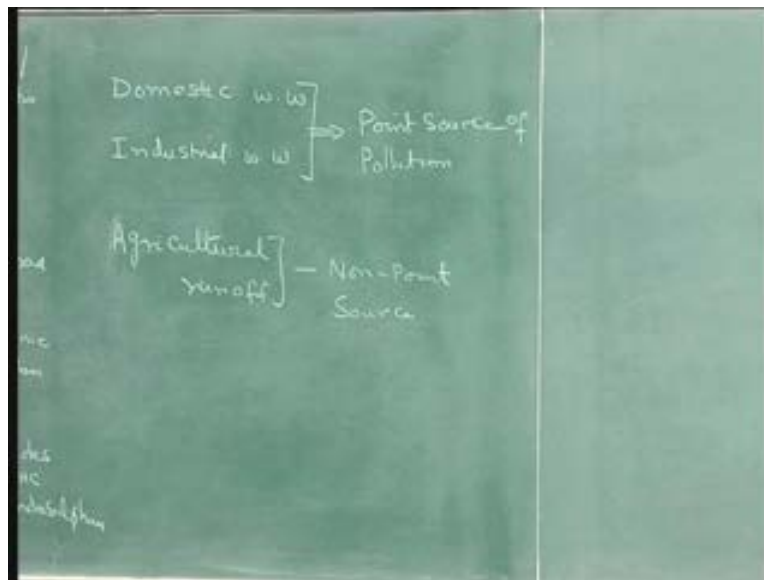 Domestic w.w
Industrial w W
Point Source of
Pollution
Agricultural
runoff
— Non-Point
Source